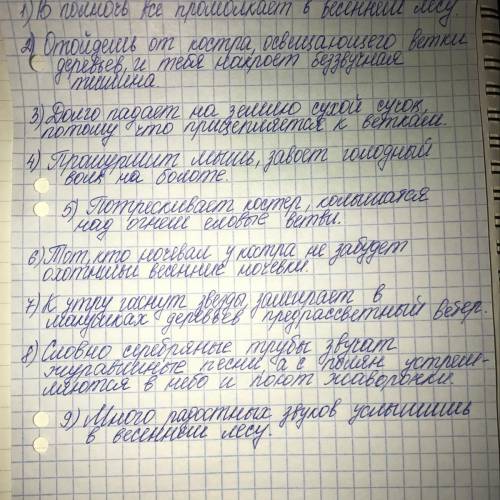 1) В полночь все промолкает в весеннем лесу.
2) Отойдешь от костра, освещающего ветки
деревьев, и тебя накроет беззвучная
тишина.
3) Долго падает на землю сухой сучок,
потому что прицепляется к веткам.
4) Прошуршит мышь, завоет голодный
волк на болоте.
5) Потрескивает костер, колышатся
над огнем еловые ветви.
6) Тот, кто ночевал у костра не забудет
охотничьи весенние ночевки.
7) К утру гаснут звезды, замирает в
макушках деревьев предрассветный ветер.
8) Словно серебряные трубы звучат
журавлиные песни, а с полян устрем-
ляются в небо и поют жаворонки.
9) Много радостных звуков услышишь
в весенним лесу.